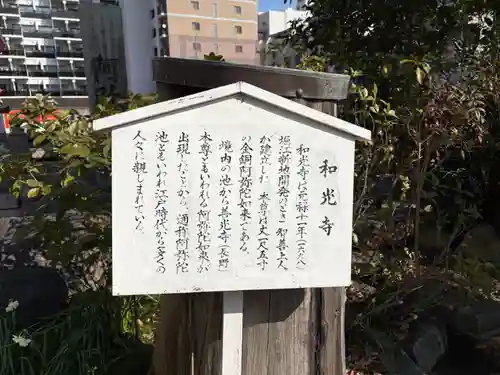 和光寺
和光寺は元禄十一年(一六九八)
堀江新地開発のさい智善上人
が建立した。本尊は丈一尺五寸
の金銅阿弥陀如来である。
境内の池から善光寺(長野)
本尊ともいわれる阿弥陀如来が
出現したことから、通称阿弥陀
池ともいわれ江戸時代から多くの
人々に親しまれていた。